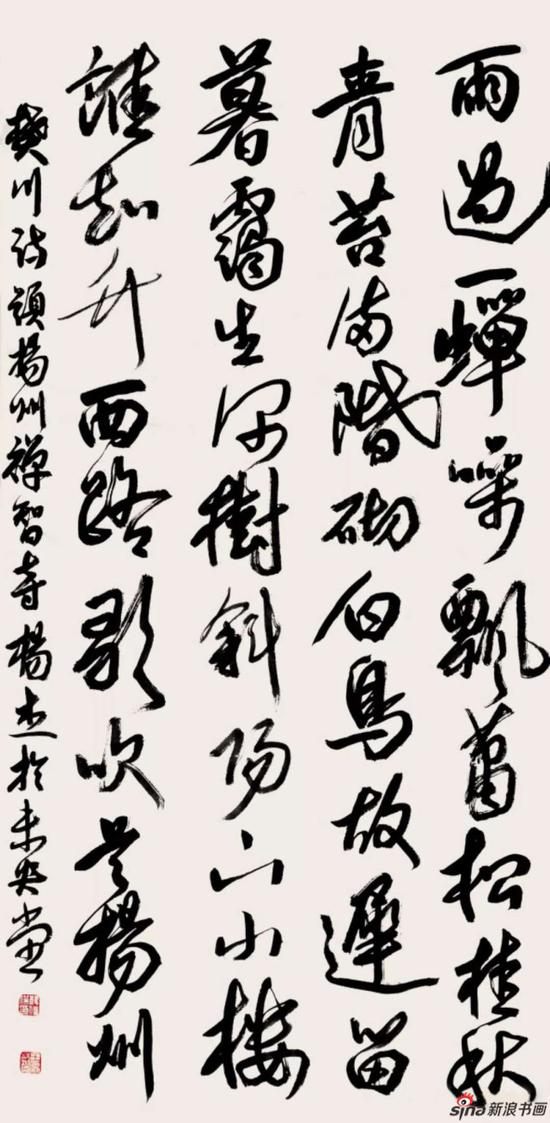 雨過一蟬噪飄蕭松桂秋
青苔滿階砌白鳥故遲留
暮靄生深樹斜陽下小樓
誰知竹西路歌吹是楊州
樊川詩題楊州禪智寺楊杰於未央堂
sina新浪书画